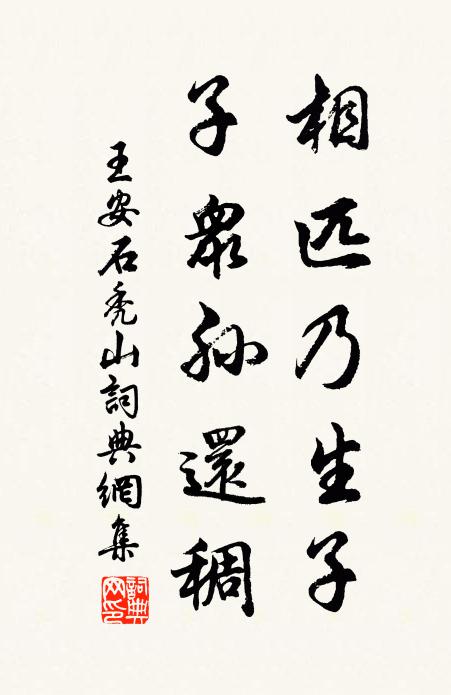 相匹乃生子
子衆孫還稠
王安石禿山詞典網集
詞典網印